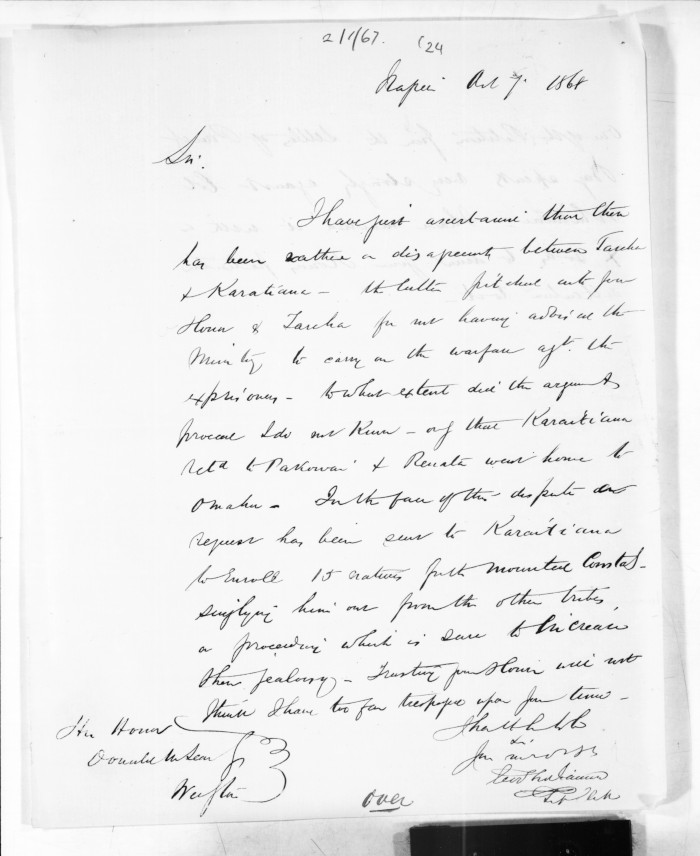 2/1/67. 24
Napier Oct 7. 1868
Sir.
I have just ascertained that there
has been rather a disagreement between Tareha
& Karaitiana — the latter pitched into your
Honor & Tareha for not having advised the
Ministry to carry on the warfare agt. the
exprisoners — to what extent did the argument
proceed I do not know — only that Karaitiana
retd to Pakowai & Renata went home to
Omahu — In the face of this dispute a
request has been sent to Karaitiana
to Enroll 15 natives for the Mounted Constab-
singling him out from the other tribes,
a proceeding which is sure to increase
their jealousy — Trusting your Honor will not
think I have too far trespassed upon your time —
I have the honor
Sir
His Honor
Donald McLean
Wellington
over